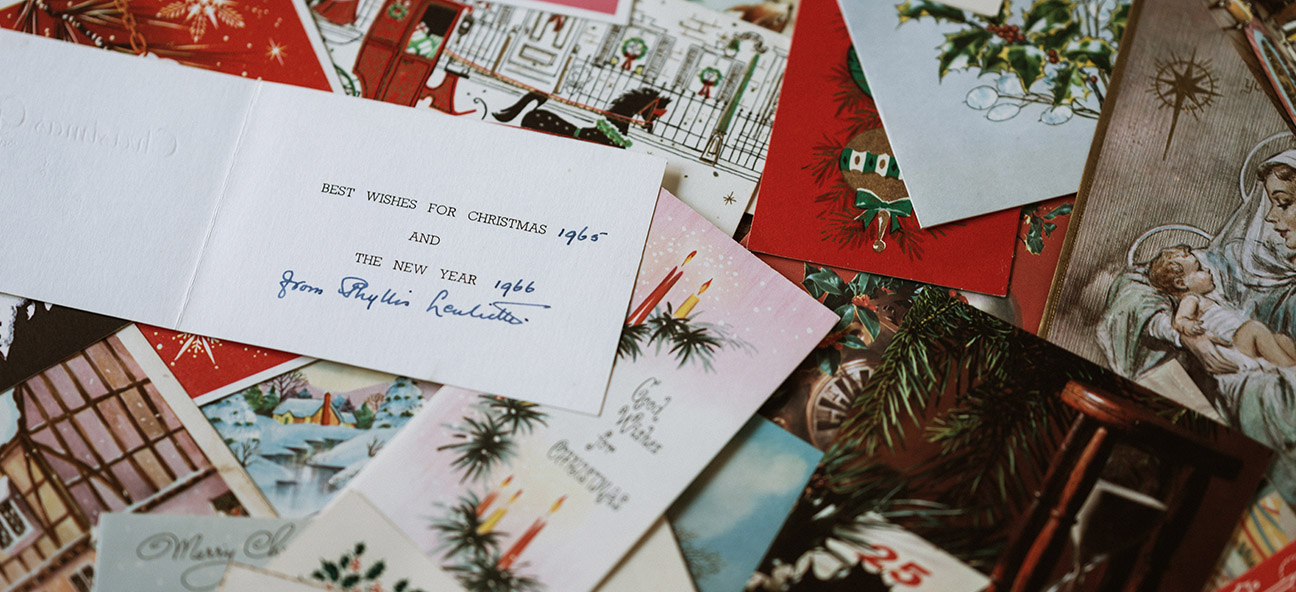 BEST WISHES FOR CHRISTMAS 1965
AND
THE NEW YEAR 1966
from Phyllis
Good
Wishes
for
CHRISTMAS
Merry
25
Christmas